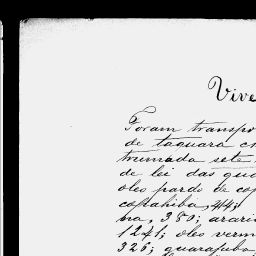 Vive
Foram transpo
de taquara c
trumada sete
de lei das qua
oleo pardo de co
copahiba, 44;
na, 380; arari
1241; oleo verm
326; guarajuba